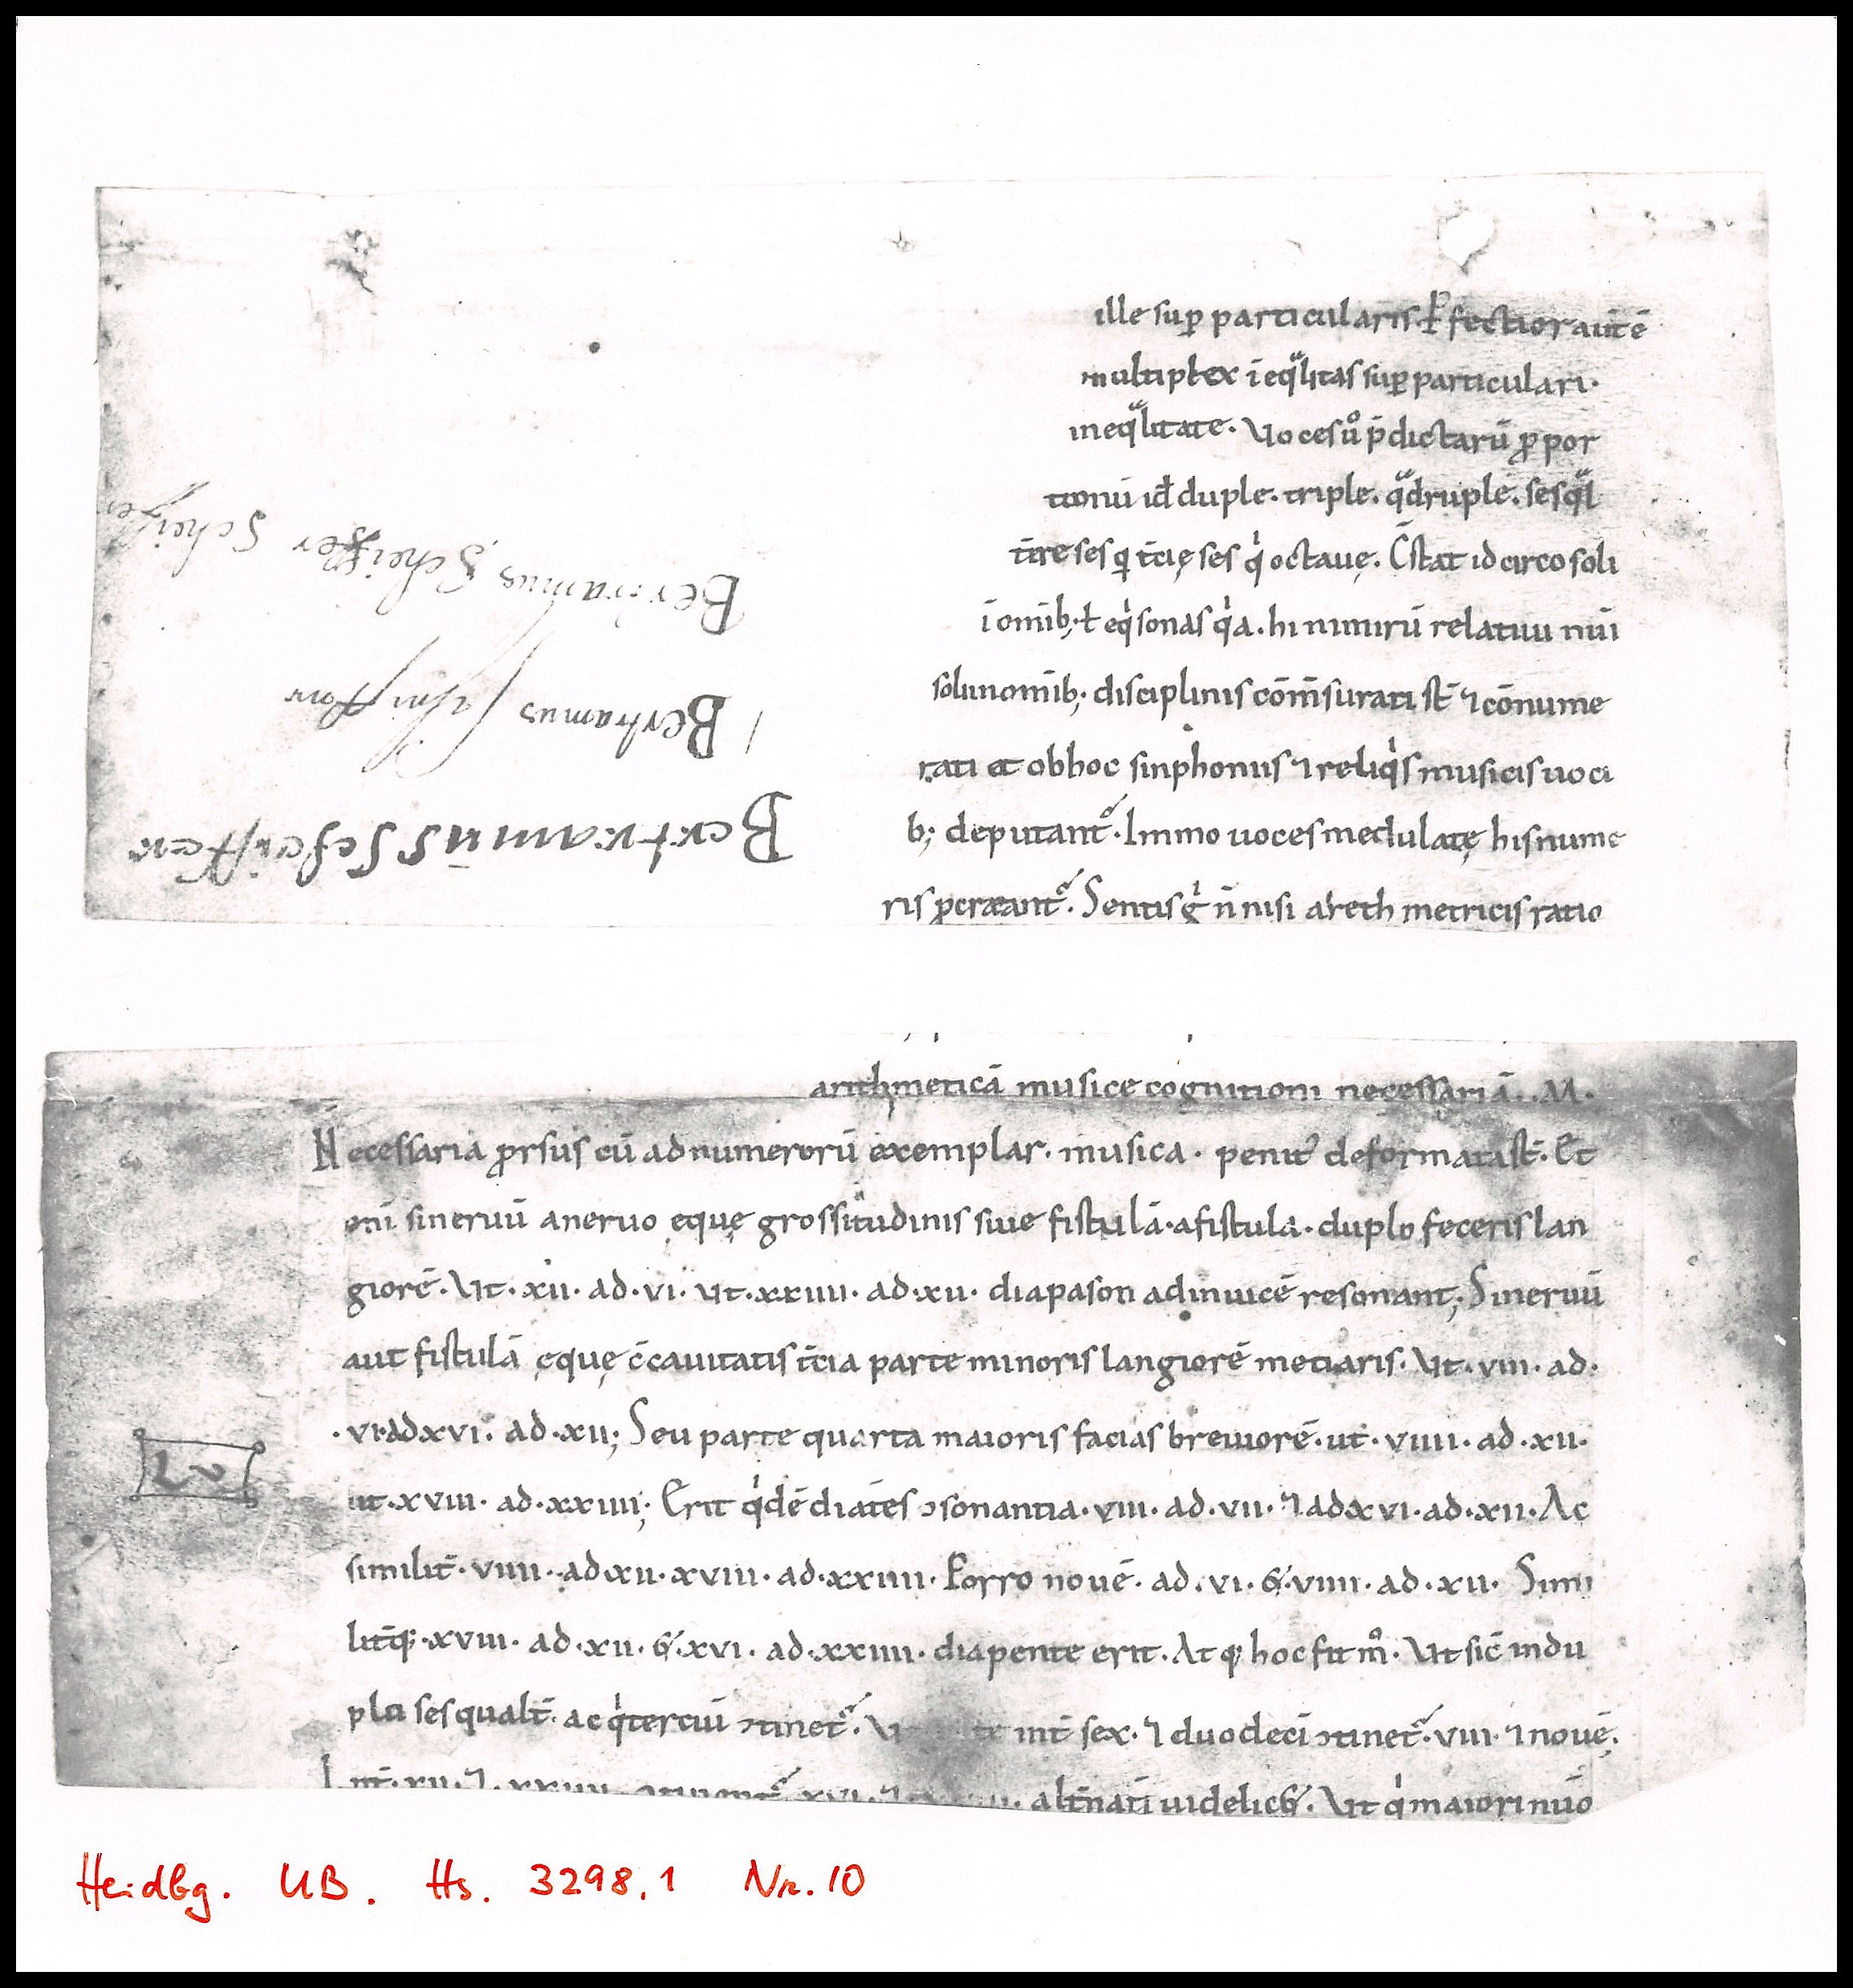 ille suꝑ particularis ꝉ fectior aūt ē
multiplex ī eqͣlitas suꝑ particulari·
ineqͣlitate· Voces ůo p̄dictarū ꝓpor
tionū id̄ duple· triple· qͣdruple· sesqͣl
tere ses qi t̄cię ses qͥ octauę· C̄stat id circo soli
ī omīb; ꝉ eqͥsonas qͥa· hi nimirū relatiui nūi
soli in omīb; disciplinis cōm̄surati st̄ ⁊ cōnume
rati et ob hoc sinphoniis ⁊ reliqͥs musicis uoci
b; deputant᷒· Immo uoces modulatę his nume
ris ꝓcreant᷒· Sentis gͥ n̄ nisi areth metricis ratio
Bertramus Scheiffer Scheiffer
Bertramus
Bertramus Scheiffer
arithmeticā musice cognitioni necessariā. M.
Necessaria ꝓrsus cū ad numerorū exemplar· musica· penit᷒ deformata st̄· Et
om̄i si neruū a neruo ęquę grossitudinis siue fistulā· a fistula· duplo feceris lan
giorē· Vt· xii· ad· vi· ut· xxiiii· ad· xii· diapason ad inuicē resonant; Si neruū
aut fistulā ęquę c̄cauitatis t̄cia parte minoris langiorē metiaris· Vt· viii· ad·
·vi· ad xvi· ad· xii; Seu parte quarta maioris facias breuiorē· ut· viiii· ad· xii·
Lv
ut· xviii· ad· xxiiii; Erit qͥdē diat̄es ɔsonantia· viii· ad· vii· ⁊ ad xvi· ad· xii· Ac
similit̄· viiii· ad· xii· xviii· ad· xxiiii· Porro nouē· ad· vi· &· viiii· ad· xii· Simi
lit̄q;· xviii· ad· xii· &· xvi· ad· xxiiii· diapente erit· At q; hoc fit mͦ· Vt sic̄ in du
pla sesqualt̄· ac qͥterciū ɔtinet᷒· int̄ sex· ⁊ duodecī ɔtinet᷒· viii· ⁊ nouē·
Int̄· xii· ⁊· xxiiii· ɔtinent᷒ xvi· ⁊ alt̄natī uidelic&· Vt qͥ maiori nūo
Heidbg. UB. Hs. 3298,1 Nr. 10